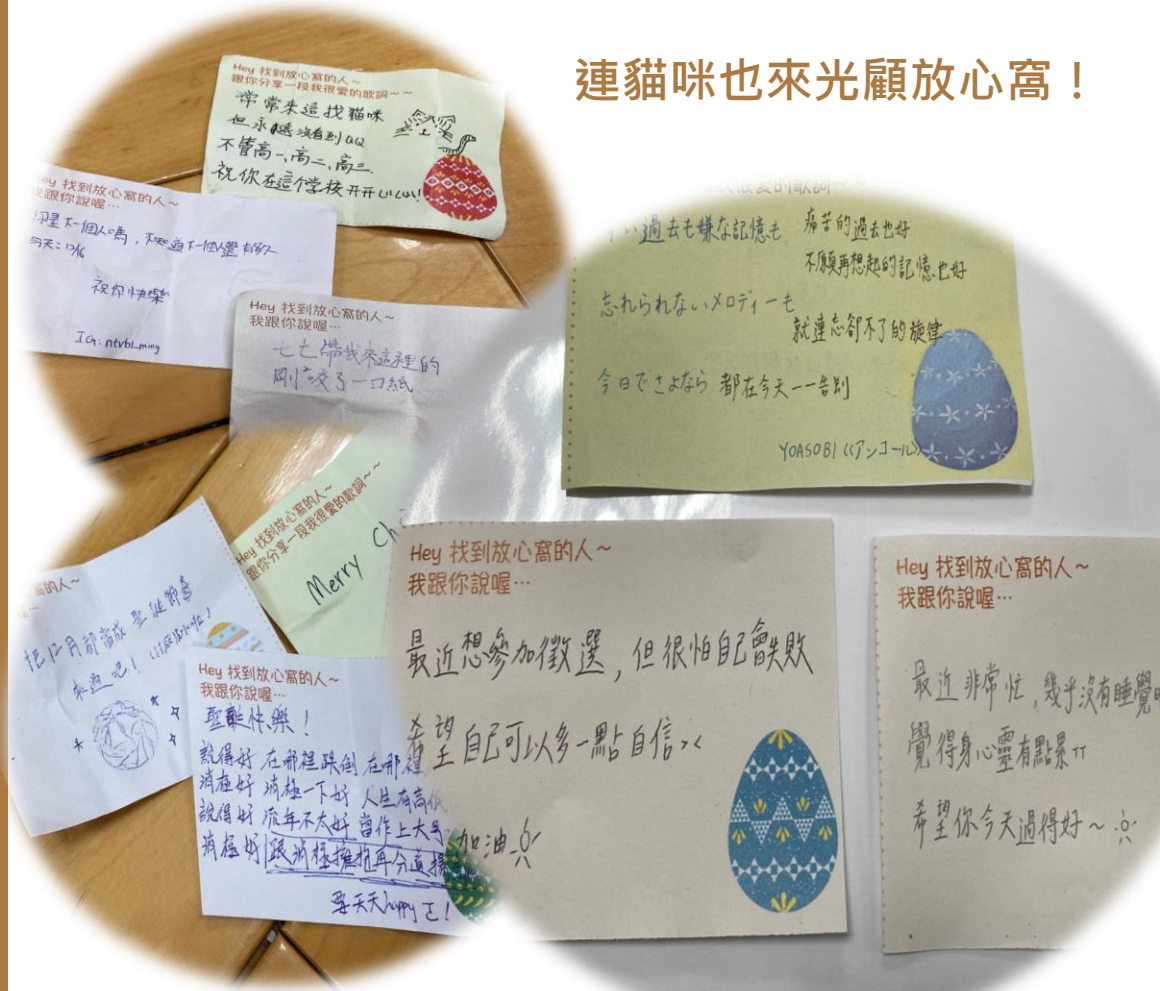 連貓咪也來光顧放心窩！
Hey 找到放心窩的人～
跟你分享一段我很愛的歌詞～～
常常來這找貓咪
但永遠沒看到QQ
不管高一、高二、高三.
祝你在這個學校開開心心!
找到放心窩的人～
我跟你說喔…
祝你快樂
IG: ntvbl_ming
Hey 找到放心窩的人～
我跟你說喔…
七七帶我來這裡的
剛咬了一口紙
Hey 找到放心窩的人～
跟你分享一段我很愛的歌詞～～
Merry Ch
窩的人～
把12月都當成聖誕節
來過吧!
Hey 找到放心窩的人～
我跟你說喔…
聖誕快樂！
說得好 在哪裡跌倒 在哪裡
消極好 消極一下好 人生有高低
說得好 流年不太好 當作上大號
消極好 跟消極擁抱再分道揚
要天天happy
我很愛的歌詞～～
い過去も嫌な記憶も 痛苦的過去也好
不願再想起的記憶也好
忘れられないメロディーも
就連忘卻不了的旋律
今日でさよなら 都在今天一一告別
YOASOBI《アンコール》
Hey 找到放心窩的人～
我跟你說喔…
最近想參加徵選，但很怕自己會失敗
希望自己可以多一點自信><
加油
Hey 找到放心窩的人～
我跟你說喔…
最近非常忙，幾乎沒有睡覺時
覺得身心靈有點累TT
希望你今天過得好～